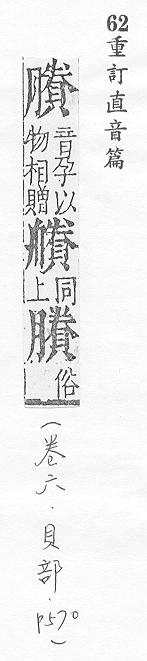 62重訂直音篇
賸
音孕以
物相贈
同
上
俗
(卷六．貝部．P570)